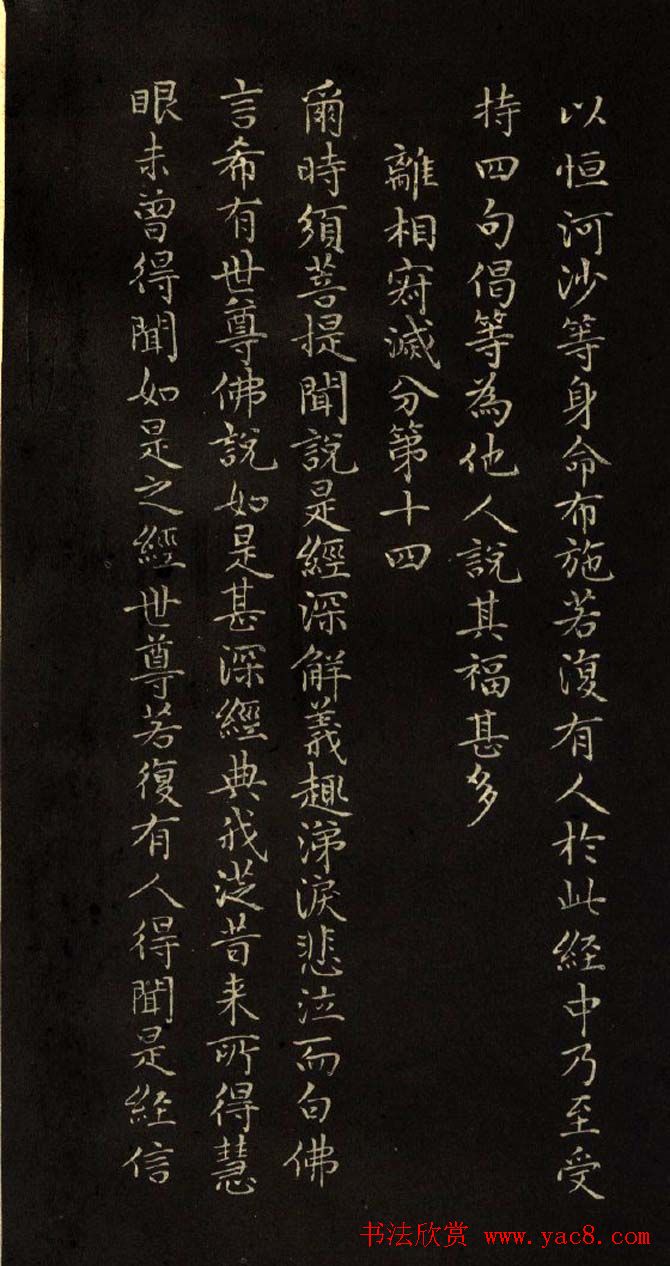 以恒河沙等身命布施若復有人於此経中乃至受
持四句偈等為他人說其福甚多
離相寂滅分第十四
爾時須菩提聞說是經深解義趣涕淚悲泣而白佛
言希有世尊佛說如是甚深經典我従昔来所得慧
眼未曾得聞如是之經世尊若復有人得聞是経信
书法欣赏 www.yac8.com